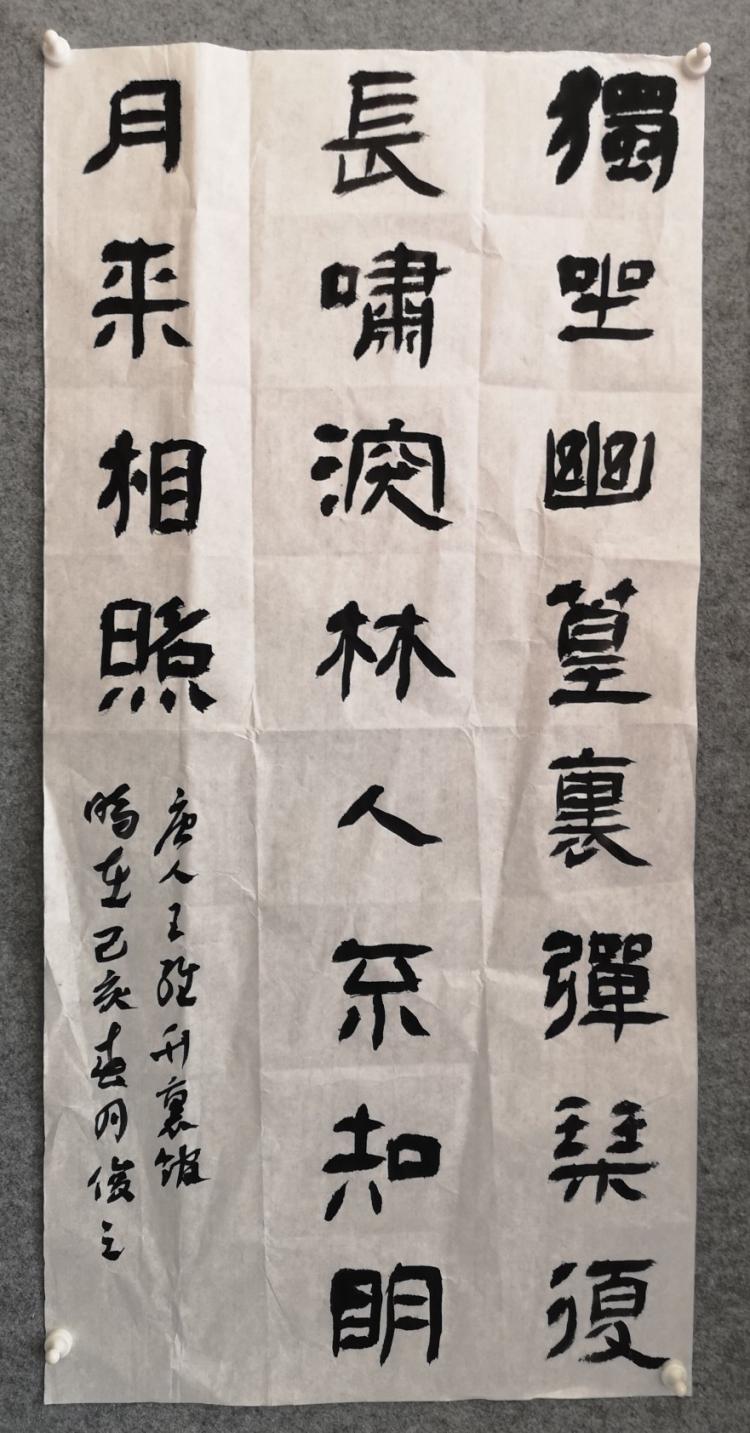 獨坐幽篁裏彈琹復
長嘯深林人不知眀
月来相照
唐人王維竹裏館
在己亥春月俊之